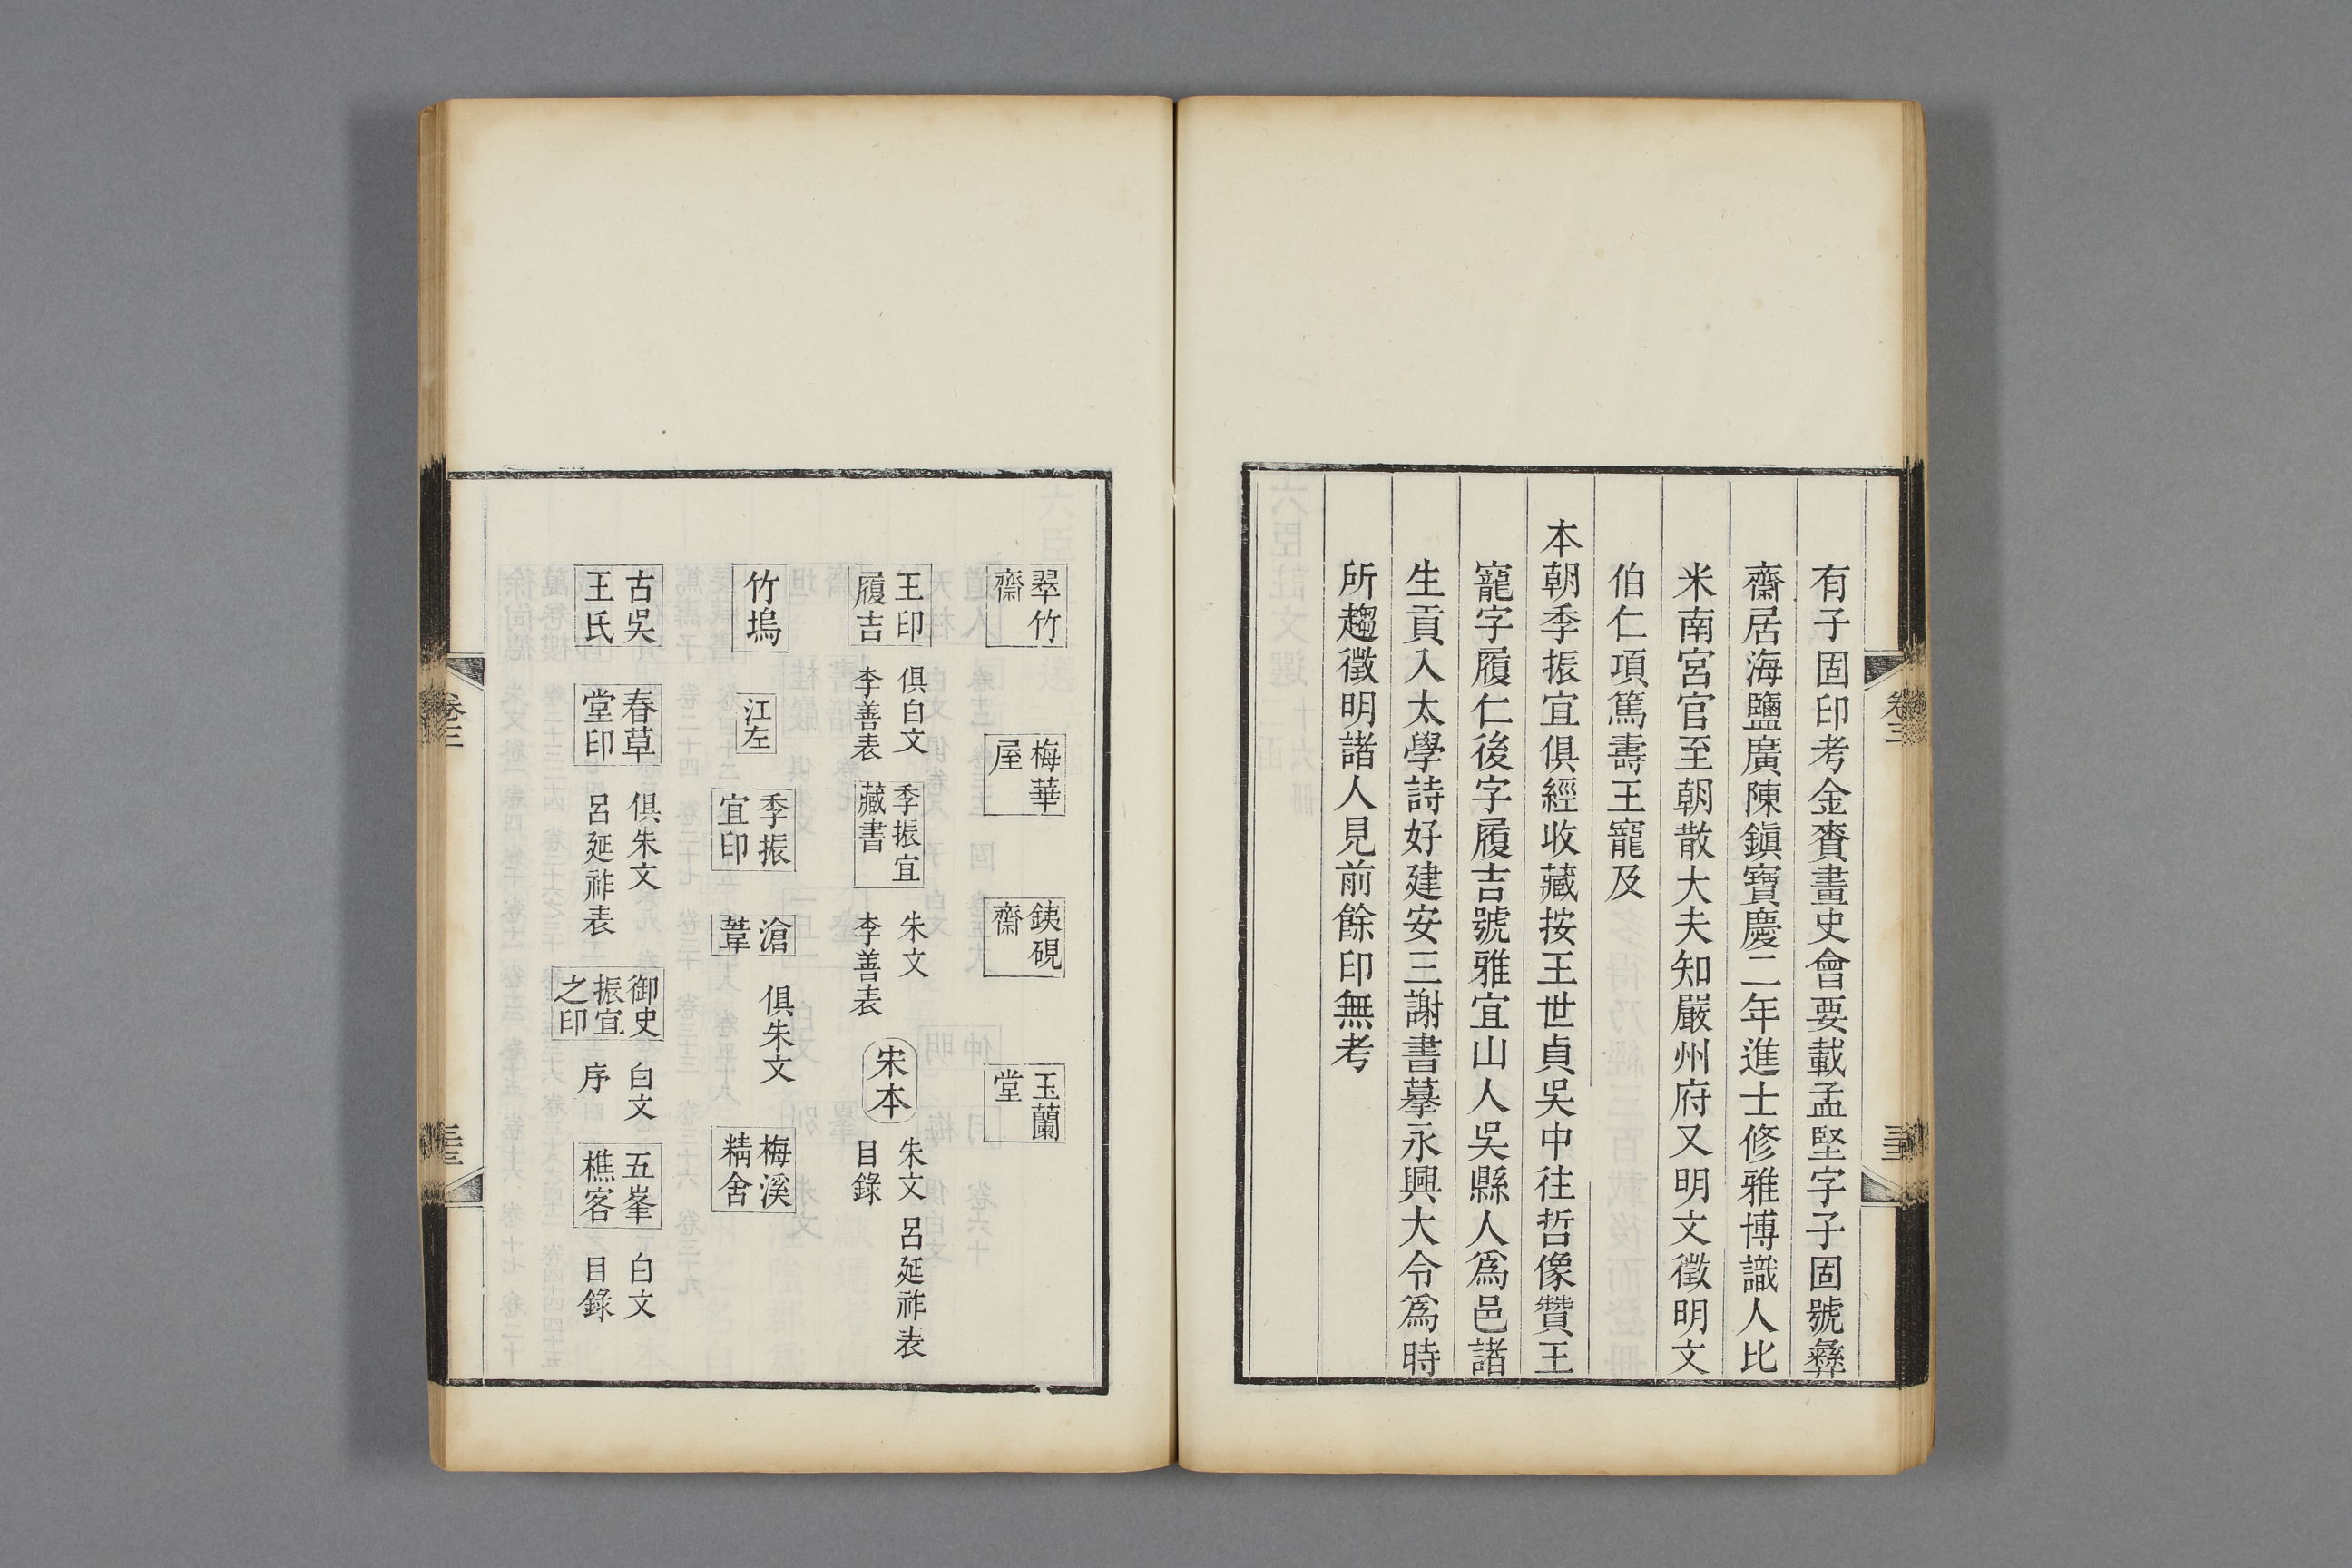 有子固印考金賚畫史會要載孟堅字子固號彝
齋居海鹽廣陳鎮寶慶二年進士修雅博識人比
米南宮官至朝散大夫知嚴州府又明文徵明文
伯仁項篤壽王寵及
本朝季振宜俱經收藏按王世貞吳中往哲像贊王
寵字履仁後字履吉號雅宜山人吳縣人爲邑諸
生貢入太學詩好建安三謝書摹永興大令爲時
所趨徵明諸人見前餘印無考
卷三
三十三
翠竹齋
梅華屋
銕硯齋
玉蘭堂
王印履吉
俱白文
李善表
季振宜藏書
朱文
李善表
宋本
朱文
目錄
呂延祚表
竹塢
江左
季振宜印
滄葦
俱朱文
梅溪精舍
古吳王氏
春草堂印
俱朱文
呂延祚表
御史振宜之印
白文
序
五峯樵客
白文
目錄
卷三